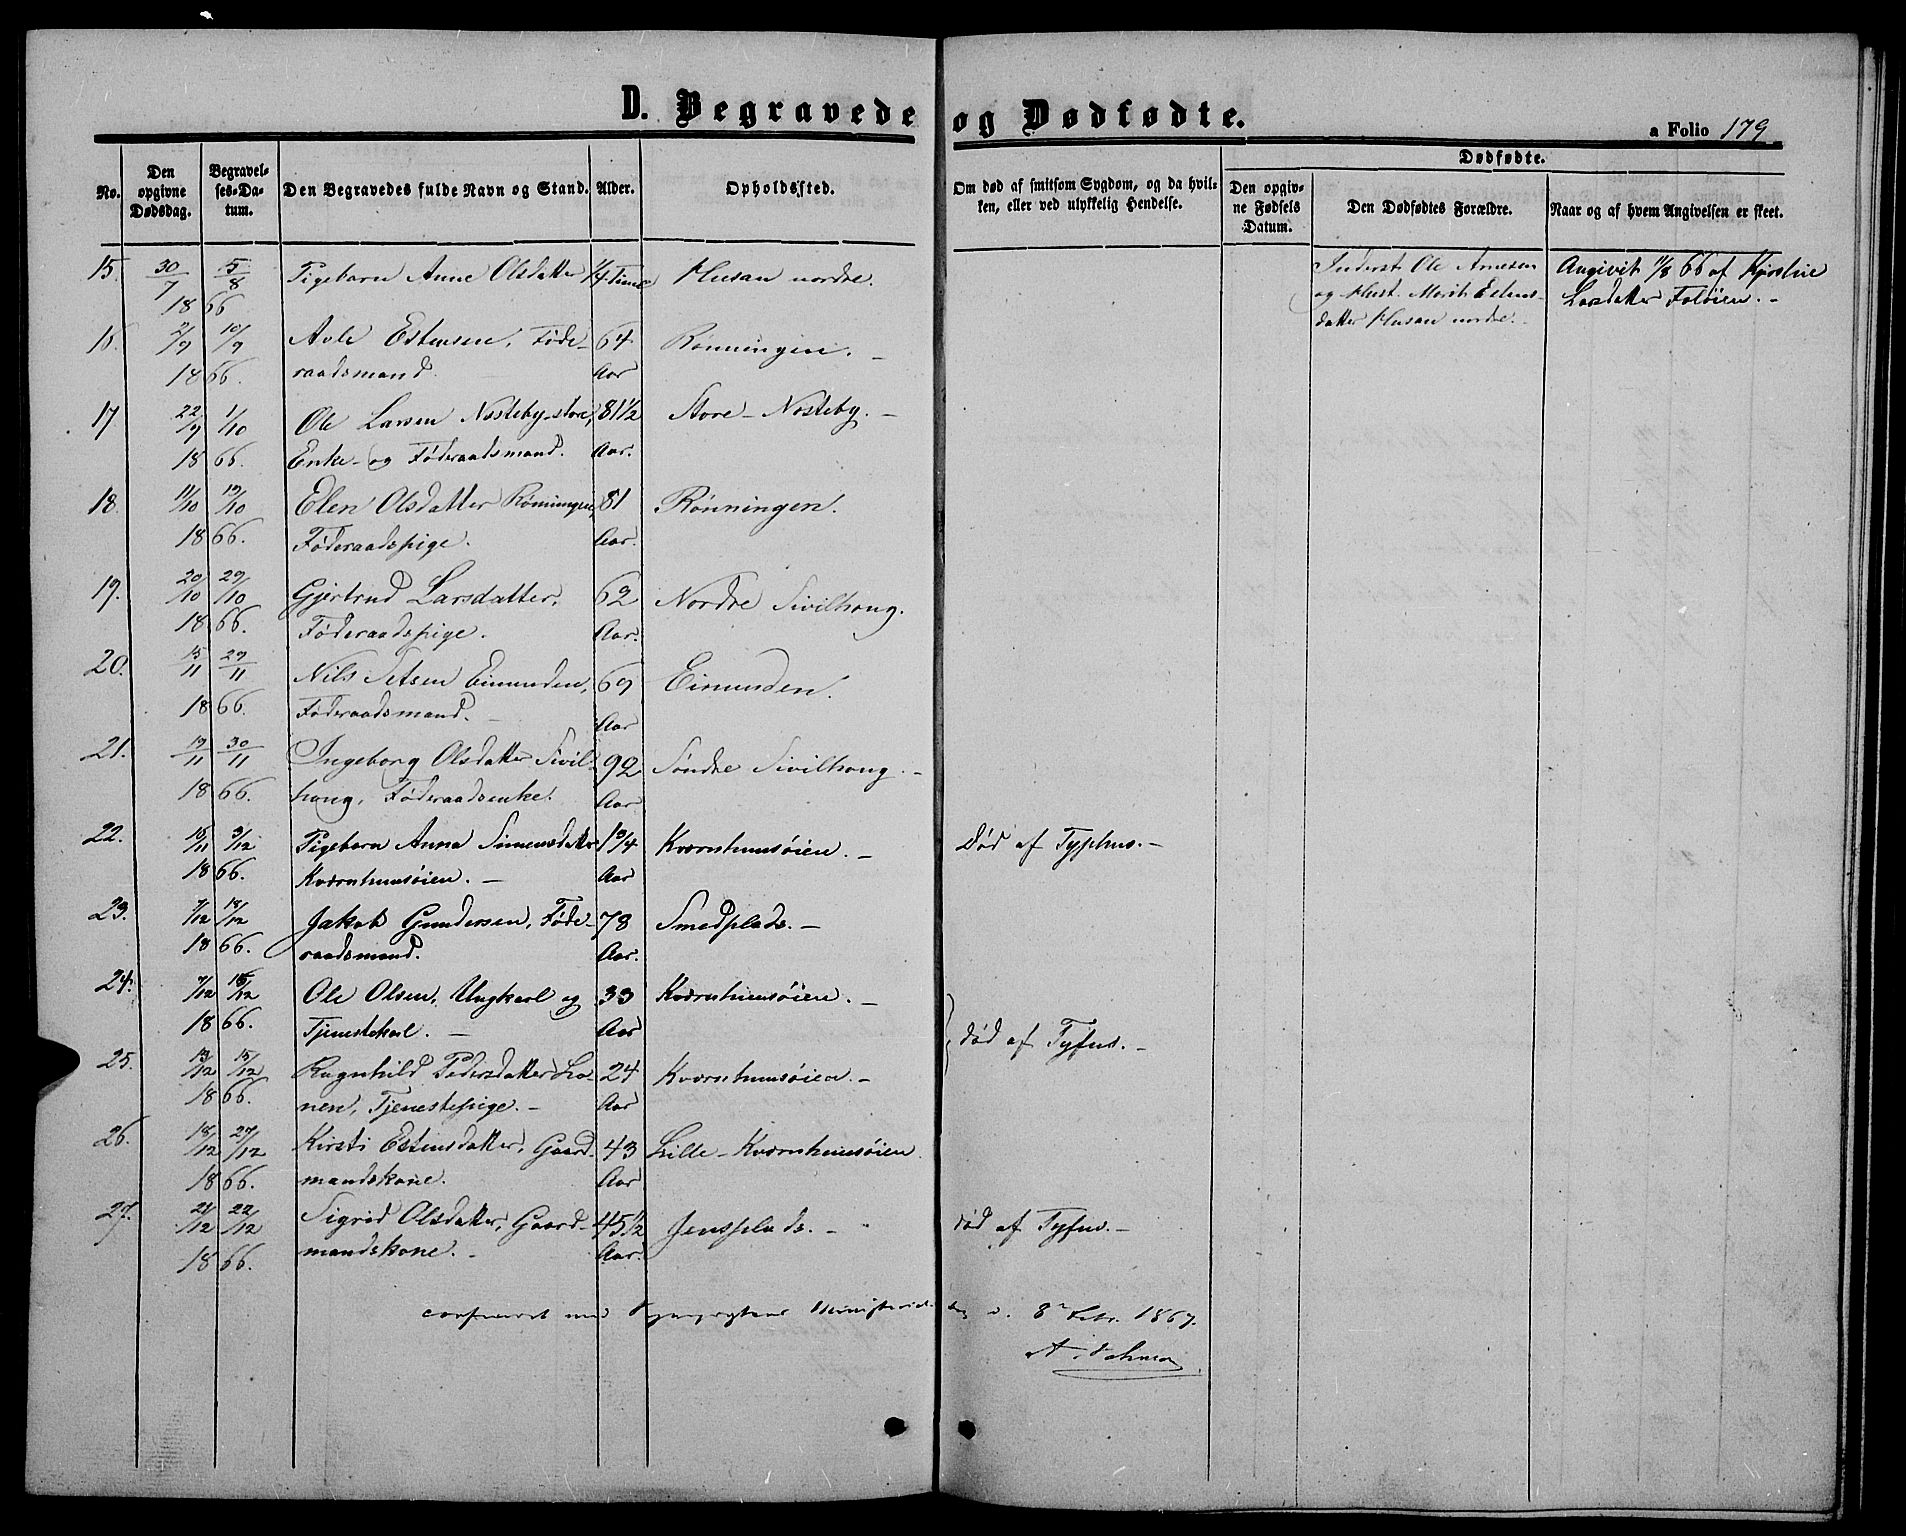 D. Begravede og Dødfødte.
a Folio 179
No.
Den opgivne Dødsdag.
Begravelses-Datum.
Den Begravedes fulde Navn og Stand.
Alder.
Opholdssted.
Om død af smitsom Sygdom, og da hvilken, eller ved ulykkelig Hendelse.
Dødfødte.
Den opgivne Fødsels Datum.
Den Dødfødtes Forældre.
Naar og af hvem Angivelsen er skeet.
15. 30/7 5/8 Pigebarn Anne Olsdatter 1/4 Time Husan nordre. Inderst Ole Arnesen Angivet 11/8 66 af Kjerstie
1866 og Hust. Marit Estens- Larsdatter Foløien. -
datter Husan nordre. -
16. 2/9 10/9 Avle Estensen, Føde- 64 Rønningen. -
1866. raadsmand. Aar
17 22/9 1/10 Ole Larsen Nosteby-store, 81 1/2 Store-Nosteby. -
1866. Enke- og Føderaadsmand. Aar.
18. 11/10 19/10 Elen Olsdatter Rønningen, 81 Rønningen.
1866. Føderaadspige. Aar.
19. 20/10 29/10 Gjertrud Larsdatter, 62 Nordre Sivilhong.
1866. Føderaadspige. Aar.
20. 15/11 29/11 Nils Setsen Eimunden, 69 Eimunden.
1866. Føderaadsmand. - Aar
21. 19/11 30/11 Ingeborg Olsdatter Sivil- 92 Søndre Sivilhong. -
1866. hong, Føderaadsenke. Aar
22. 15/11 3/12 Pigebarn Anna Simensdatter 1 3/4 Kværnhusøien. - Død af Typhus. -
1866. Kværnhusøien. - Aar
23. 7/12 13/12 Jakob Gundersen, Føde- 78 Smedplads. -
1866. raadsmand. Aar.
24. 7/12 15/12 Ole Olsen, Ungkarl og 33 Kværnhusøien. -
1866. Tjenestekarl. - Aar død af Tyfus. -
25. 13/12 15/12 Ragnhild Pedersdatter Lo- 24 Kværnhusøien. -
1866. nen, Tjenestepige. - Aar
26. 18/12 27/12 Kirsti Estensdatter, Gaard- 43 Lille-Kværnhusøien
1866. mandskone. Aar
27. 21/12 22/12 Sigrid Olsdatter, Gaard- 45 1/2 Jensplads. - død af Tyfus. -
1866. mandskone. - Aar.
8 Febr. 1867.